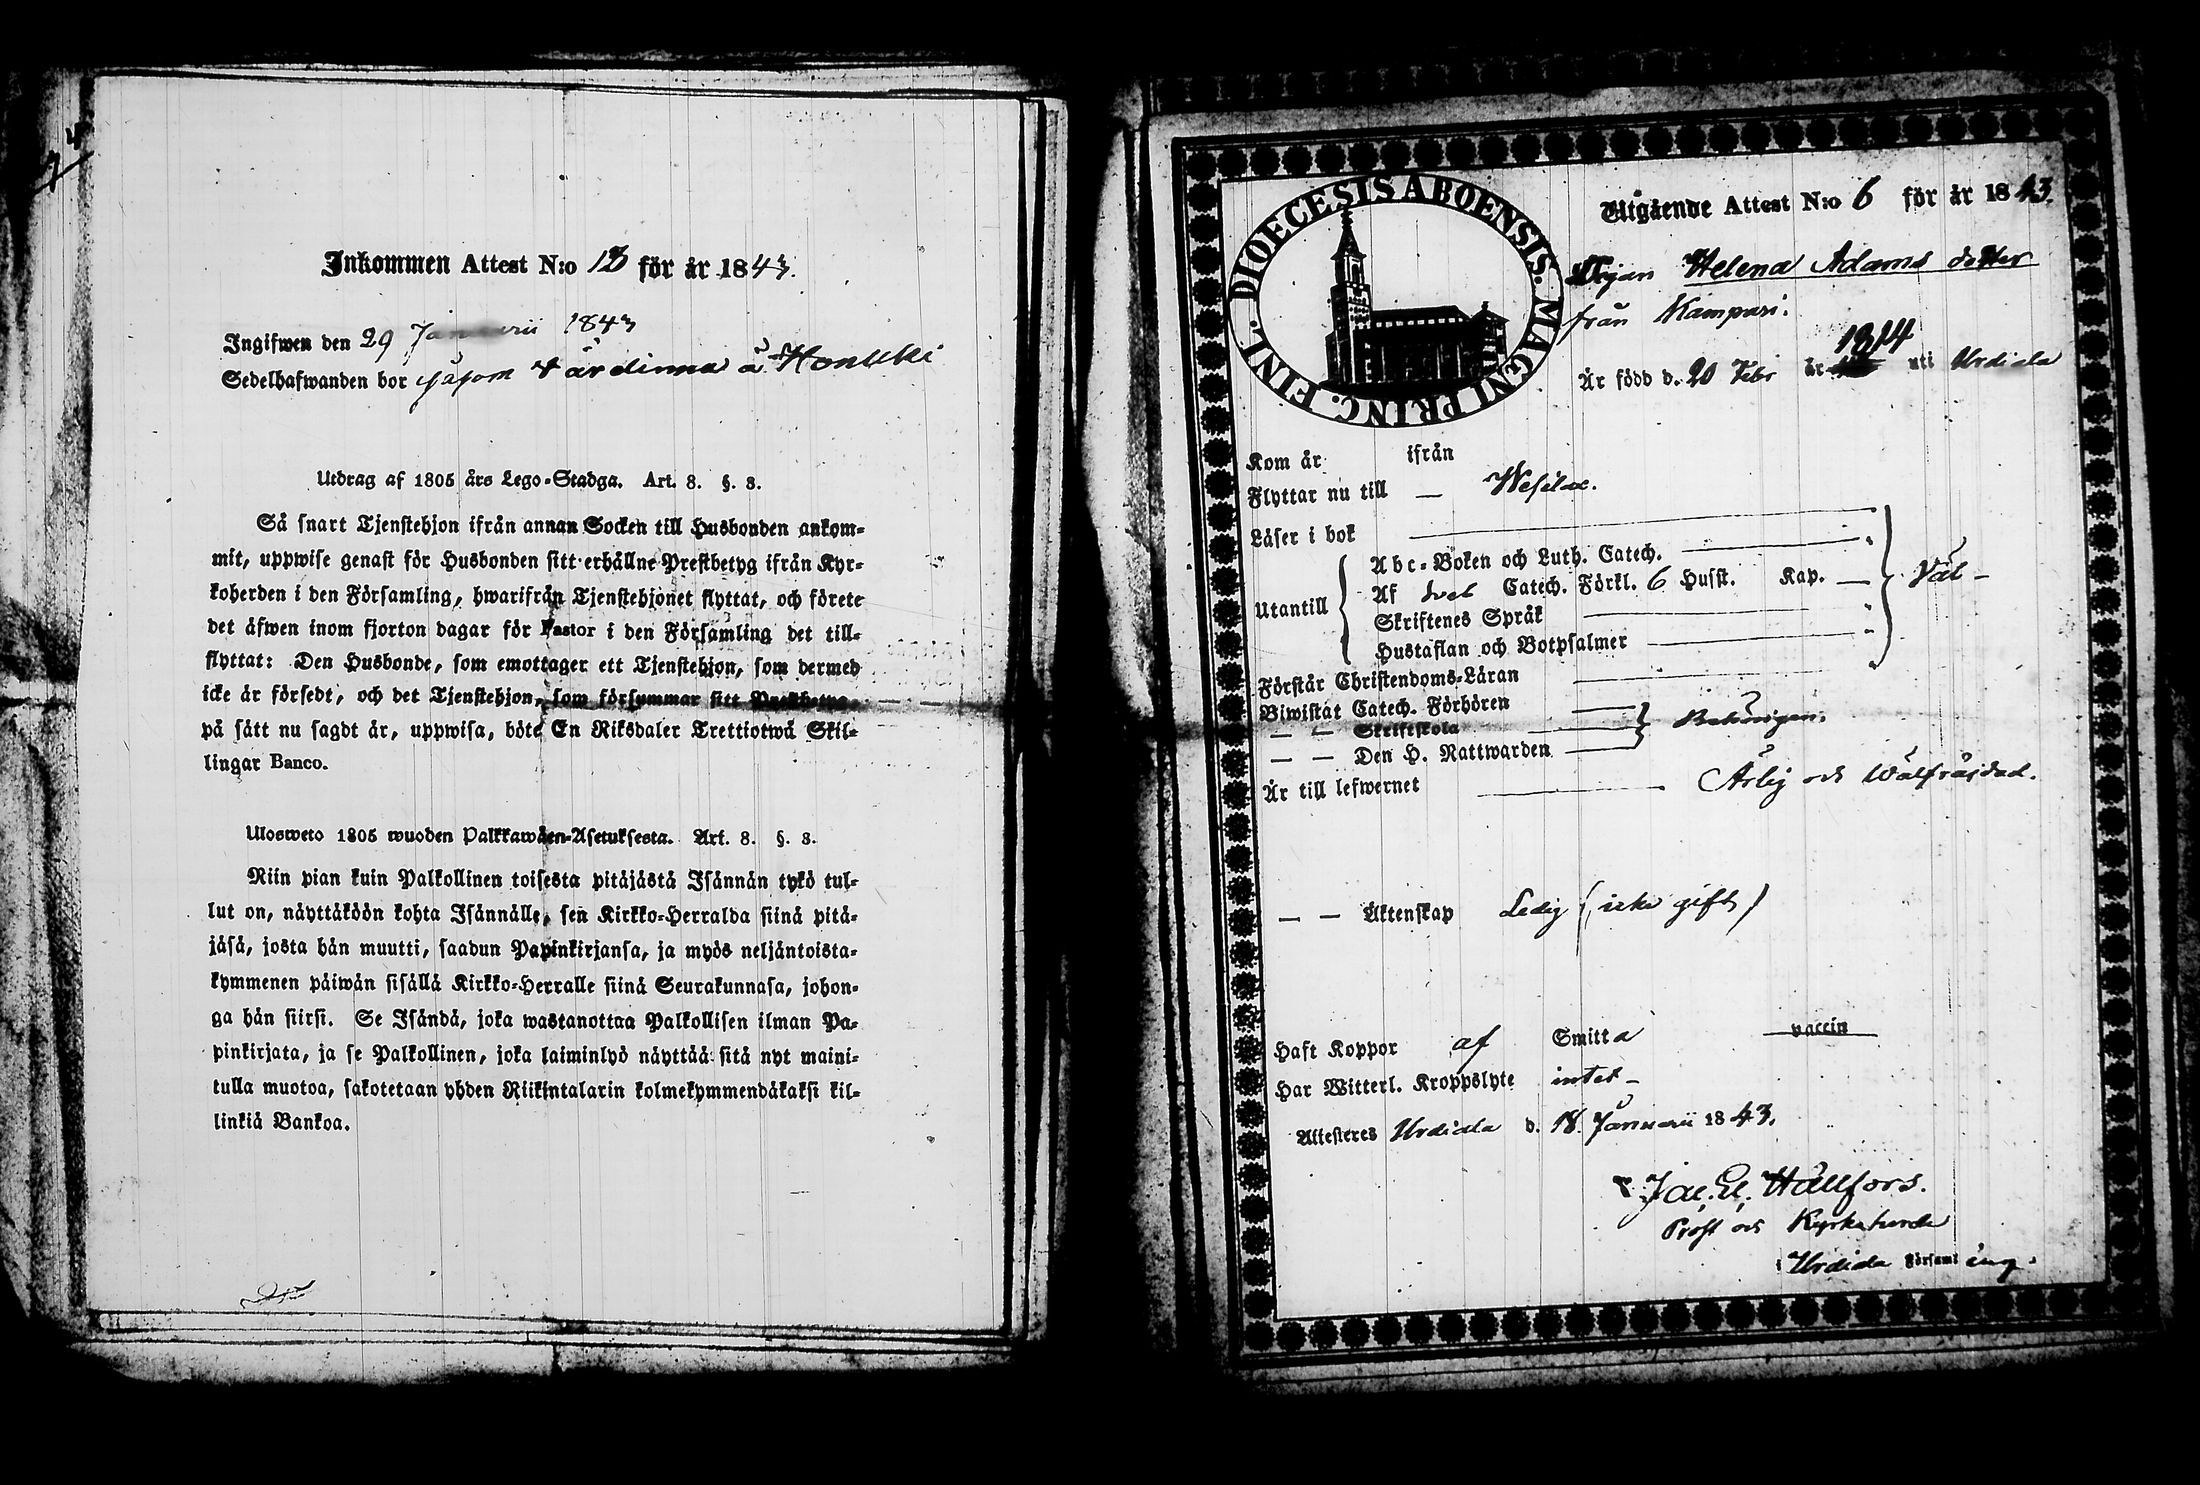 Inkommen Attest N:o 13 för år 1843.
Ingifwen den 29 Januarii 1843
Sedelhafwanden bor såsom Wärdinna å Honkki
Utdrag af 1805 års Lego-Stadga. Art. 8. §. 3.
Så snart Tjenstehjon ifrån annan Socken till Husbonden ankom-
mit, uppwise genast för Husbonden sitt erhållne Prestbetyg ifrån Kyr-
koherden i den Församling, hwarifrån Tjenstehjonet flyttat, och förete
det äfwen inom fjorton dagar för Pastor i den Församling det till-
flyttat: Den Husbonde, som emottager ett Tjenstehjon, som dermed
icke är försedt, och det Tjenstehjon, som försummar sitt Prestbetyg,
på sätt nu sagdt är, uppwisa, böte En Riksdaler Trettiotwå Skil-
lingar Banco.
Ulosweto 1805 wuoden Palkkawäen-Asetuksesta. Art. 8. §. 3.
Niin pian kuin Palkollinen toisesta pitäjästä Isännän tykö tul-
lut on, näyttäköön kohta Isännälle, sen Kirkko-Herralda siinä pitä-
jäsä, josta hän muutti, saadun Papinkirjansa, ja myös neljäntoista-
kymmenen päiwän sisällä Kirkko-Herralle siinä Seurakunnasa, johon-
ga hän siirsi. Se Isändä, joka wastanottaa Palkollisen ilman Pa-
pinkirjata, ja se Palkollinen, joka laiminlyö näyttää sitä nyt maini-
tulla muotoa, sakotetaan yhden Riikintalarin kolmekymmendäkaksi kil-
linkiä Bankoa.
DIOECESIS ABOENSIS. MAGNI PRINC. FINL.
Utgående Attest N:o 6 för år 1843.
Pigan Helena Adams dotter
från Kampari.
1814
Är född d. 20 Febr år uti Urdiala
Kom år ifrån
Flyttar nu till — Wesilax.
Läser i bok
Utantill
Abc-Boken och Luth. Catech.
Af Sveb Catech. Förkl. 6 Husst. Kap. — Väl —
Skriftenes Språk
Hustaflan och Botpsalmer
Förstår Christendoms-Läran
Biwistat Catech. Förhören
— — Skriftskola Behörigen.
— — Den H. Nattwarden
Är till lefwernet Ärlig och Wälfräjdad.
— — Äktenskap Ledig (icke gift)
Haft Koppor af Smitta vaccin
Har Witterl. Kroppslyte intet —
Attesteres Urdiala d. 18. Januarii 1843.
Jac. El. Hällfors.
Prost och Kyrkoherde
i Urdiala Församling.